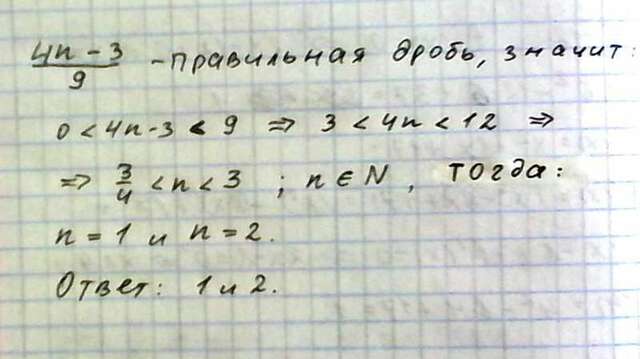 (4n - 3)/9 - правильная дробь, значит:
0 < 4n-3 < 9 ⇒ 3 < 4n < 12 ⇒
⇒ 3/4 < n < 3 ; n ∈ N, тогда:
n = 1 и n = 2.
Ответ: 1 и 2.